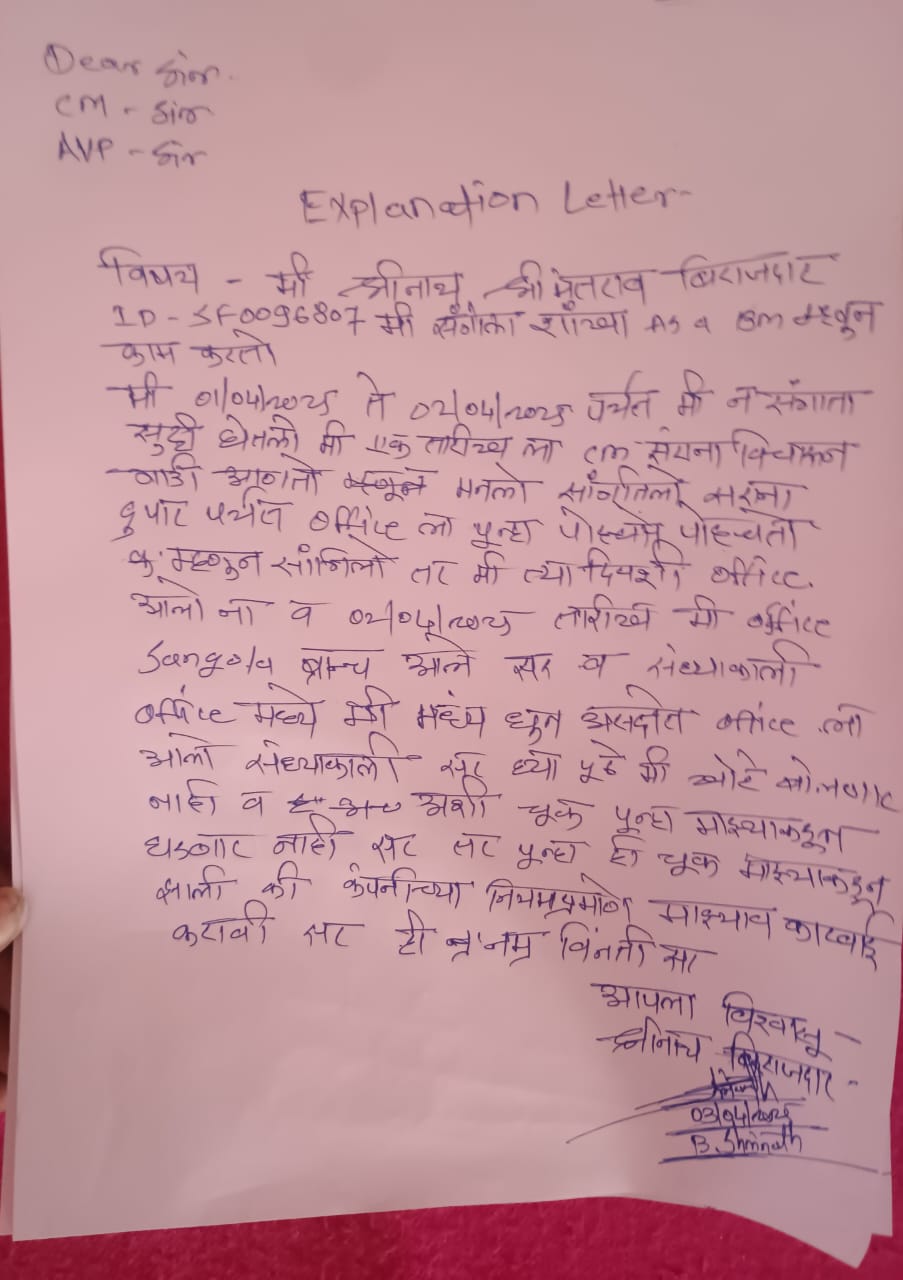 Dear सर.
CM - सर
AVP - सर
Explanation Letter-
विषय - मी श्रीनाथ श्रीमंतराव बिराजदार
ID - SF0096807 मी संगोला शाख्या As a BM म्हणून
काम करतो
मी 01/04/2025 ते 02/04/2025 पर्यंत मी न संगाता
सुट्टी घेतलो मी एक तारीख ला CM सरांना
आगतो म्हणून मनलो सांगितलो सरांना
दुपार पर्यंत office ला पुन्हा पोहचतो
म्हणून सांगिलो तर मी त्या दिवशी office.
आलो ना व 02/04/2025 तारीख मी office
Sangola ब्रान्च आले सर व संध्याकाली
office मध्ये मी मध्य धुत office ला
आलो संध्याकाली सर ह्या पुढे मी खोटे बोलणार
नाही व अशी चूक पुन्हा माझ्याकडून
घडणार नाही सर तर पुन्हा ही चूक माझ्याकडून
झाली की कंपनीच्या नियमप्रमाणे माझ्याव कारवाई
करावी सर ही नम्र विनंती सर
आपला विश्वासू -
श्रीनाथ बिराजदार -
03/04/2025
B. Shrinath